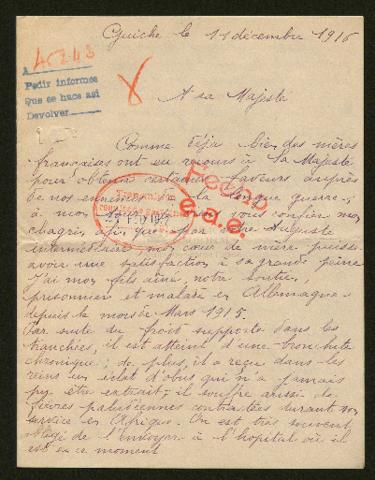 Guiche le 11 décembre 1916
45243
A
Pedir informes
Que se hace asi
Devolver
A sa Majesté
Comme déjà bien des mères
françaises ont eu recours à Sa Majesté
pour obtenir certaines faveurs auprès
de nos ennemis la longue guerre,
à mon tour vous confier mon
chagrin afin que par votre Auguste
intermédiaire mon cœur de mère puisse
avoir une satisfaction à sa grande peine
J'ai mon fils aîné, notre soutien,
prisonnier et malade en Allemagne
depuis le mois de Mars 1915.
Par suite du froid supporté dans les
tranchées, il est atteint d'une bronchite
chronique; de plus, il a reçu dans les
reins un éclat d'obus qui n'a jamais
pu être extrait; il souffre aussi de
fièvres paludéennes contractées durant son
service en Afrique. On est très souvent
obligé de l'envoyer à l'hopital où il
est en ce moment
Pedido
e.a.e.